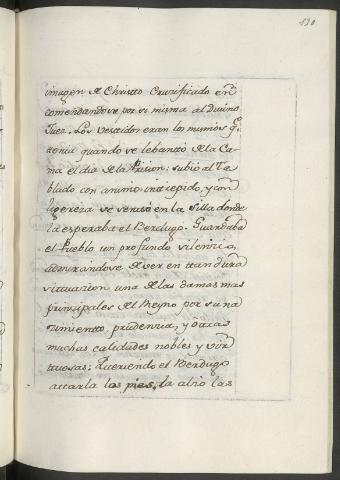 130
imagen de Christo Crusificado en
comendandose por si misma al Divino
Juez. Los vestidos eran los mismos q.
tenia quando se lebantó de la Ca-
ma el dia de la Prision: subió al Ta
blado con animo intrepido, y con
ligereza se sentó en la silla donde
la esperaba el Berdugo. Guardaba
el Pueblo un profundo silencio,
admirandose de ver en tan dura
situacion una de las damas mas
principales del Reyno por su na
cimiento, prudencia, y otras
muchas calidades nobles y vir
tuosas: Queriendo el Berdugo
attarla los pies, la alzó las